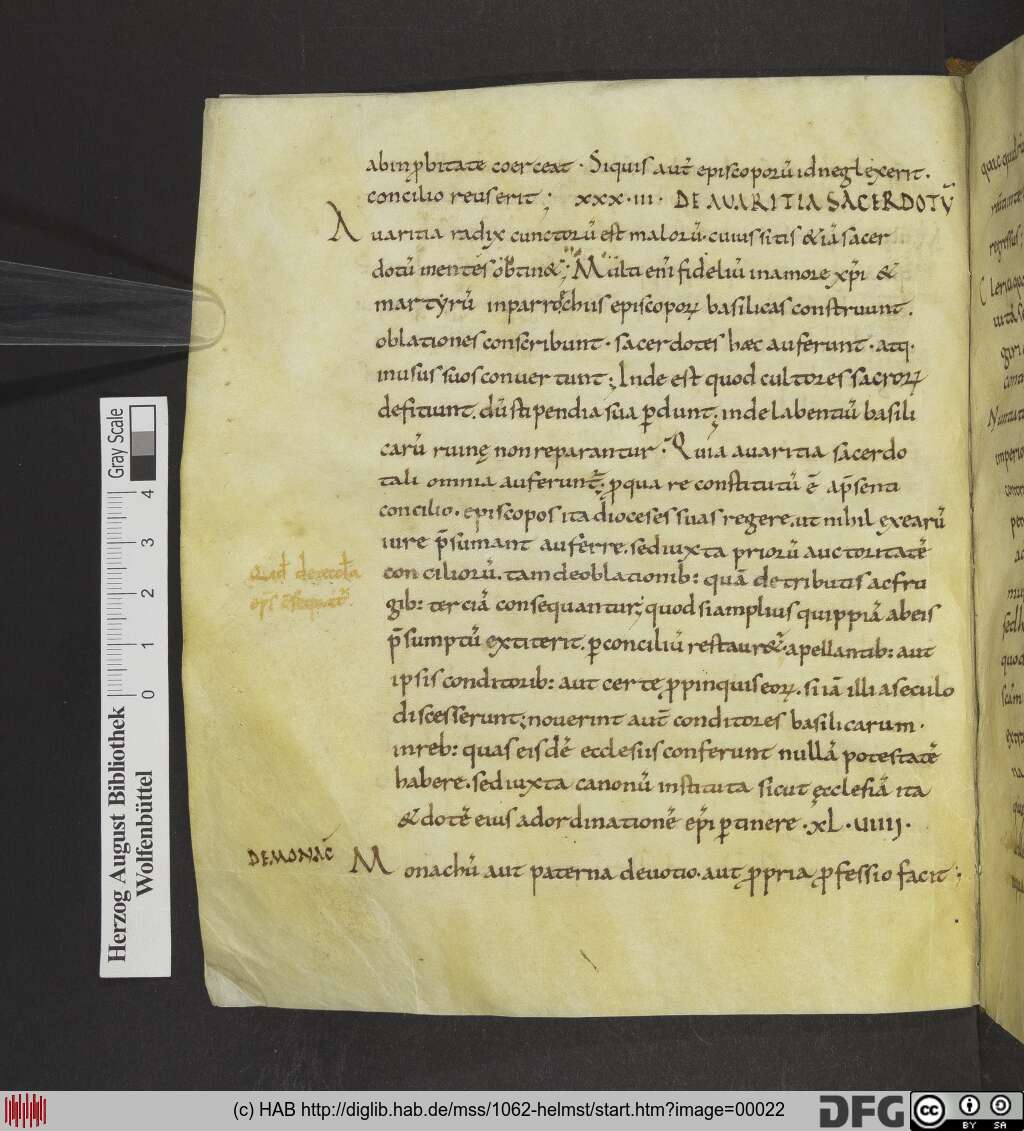 ab inꝓbitate coerceat · Siquis aut̄ episcoporū id neglexerit .
concilio reus erit ; xxx·iii· DE AVARITIA SACERDOTŪ
Avaritia radix cunctorū est malorū · cuius sitis & iā sacer
dotū mentes obtin& ; Multi eni fideliū in amore xp̄i &
martyrū in parrochiis episcoporꝝ basilicas construunt .
oblationes conscribunt · sacerdotes hæc auferunt · atq·
in usus suos convertunt ; Inde est quod cultores sacrorꝝ
defitiunt . dū stipendia sua ꝑdunt ; inde labentiū basili
carū ruinę non reparantur · Quia avaritia sacerdo
tali omnia auferunt̄ ; ꝓ qua re constitutū ē a p̄senti
concilio . episcopos ita dioceses suas regere . ut nihil ex earū
iure p̄sumant auferre . sed iuxta priorū auctoritatē
conciliorū . tam de oblationib: quā de tributis ac fru
gib: terciā consequantur ; quod si amplius quippiā ab eis
p̄sumptū extiterit . ꝑ conciliū restaur&̄ . apellantib: aut
ipsis conditorib: aut certe ꝓpinquis eorꝝ . si iā illi a seculo
discesserunt ; noverint aut̄ conditores basilicarum .
in reb: quas eisdē ecclesiis conferunt nullā potestatē
habere . sed iuxta canonū instituta sicut ęcclesiā ita
& dotē eius ad ordinationē ep̄i ꝑtinere · XL · VIIII ·
DE MONAC̄
Monachū aut paterna devotio . aut ꝓpria ꝓfessio facit ;
qđ de
Gray Scale
0 1 2 3 4
Herzog August Bibliothek
Wolfenbüttel
(c) HAB http://diglib.hab.de/mss/1062-helmst/start.htm?image=00022
DFG
cc BY SA